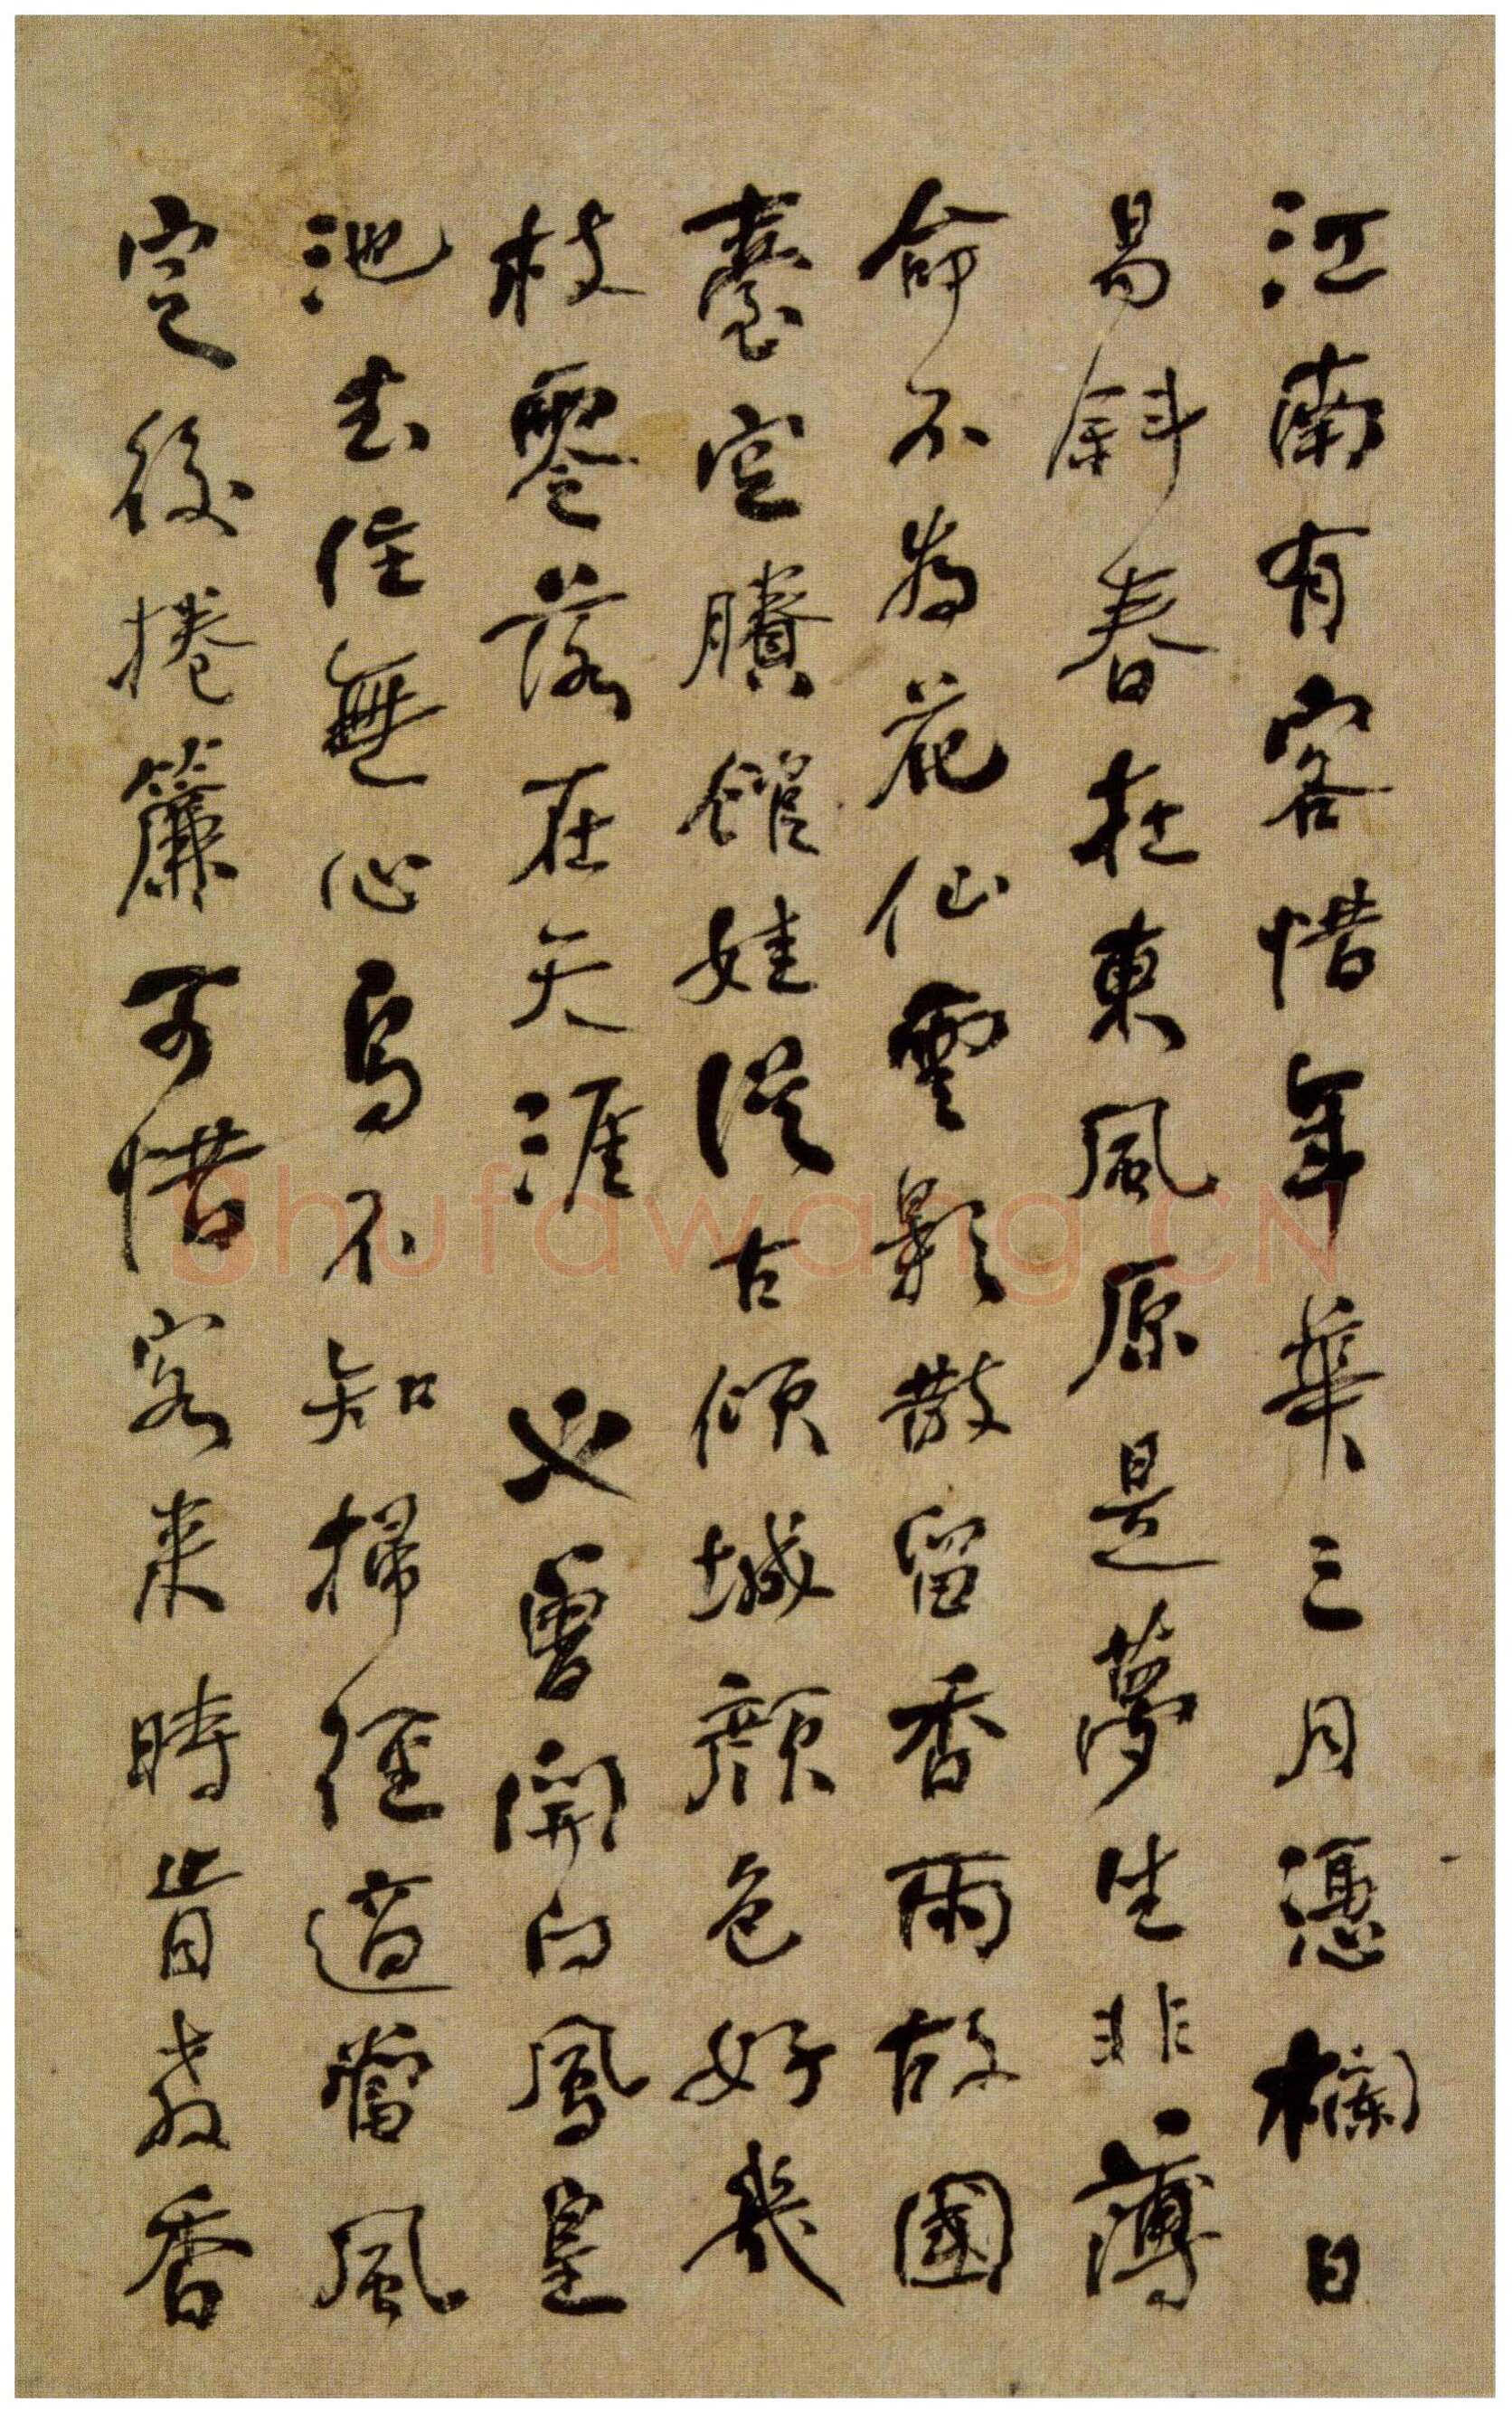 江南有客惜年華三月憑欄日
易斜春在東風原是夢生非薄
命不為花仙雲影散留香雨故國
臺空賸館娃從古傾城顏色好幾
枝零落在天涯 必曾開向鳳皇
池去住無心鳥不知掃徑適當風
定後捲簾可惜客來時肯教香
Shufawang.CN